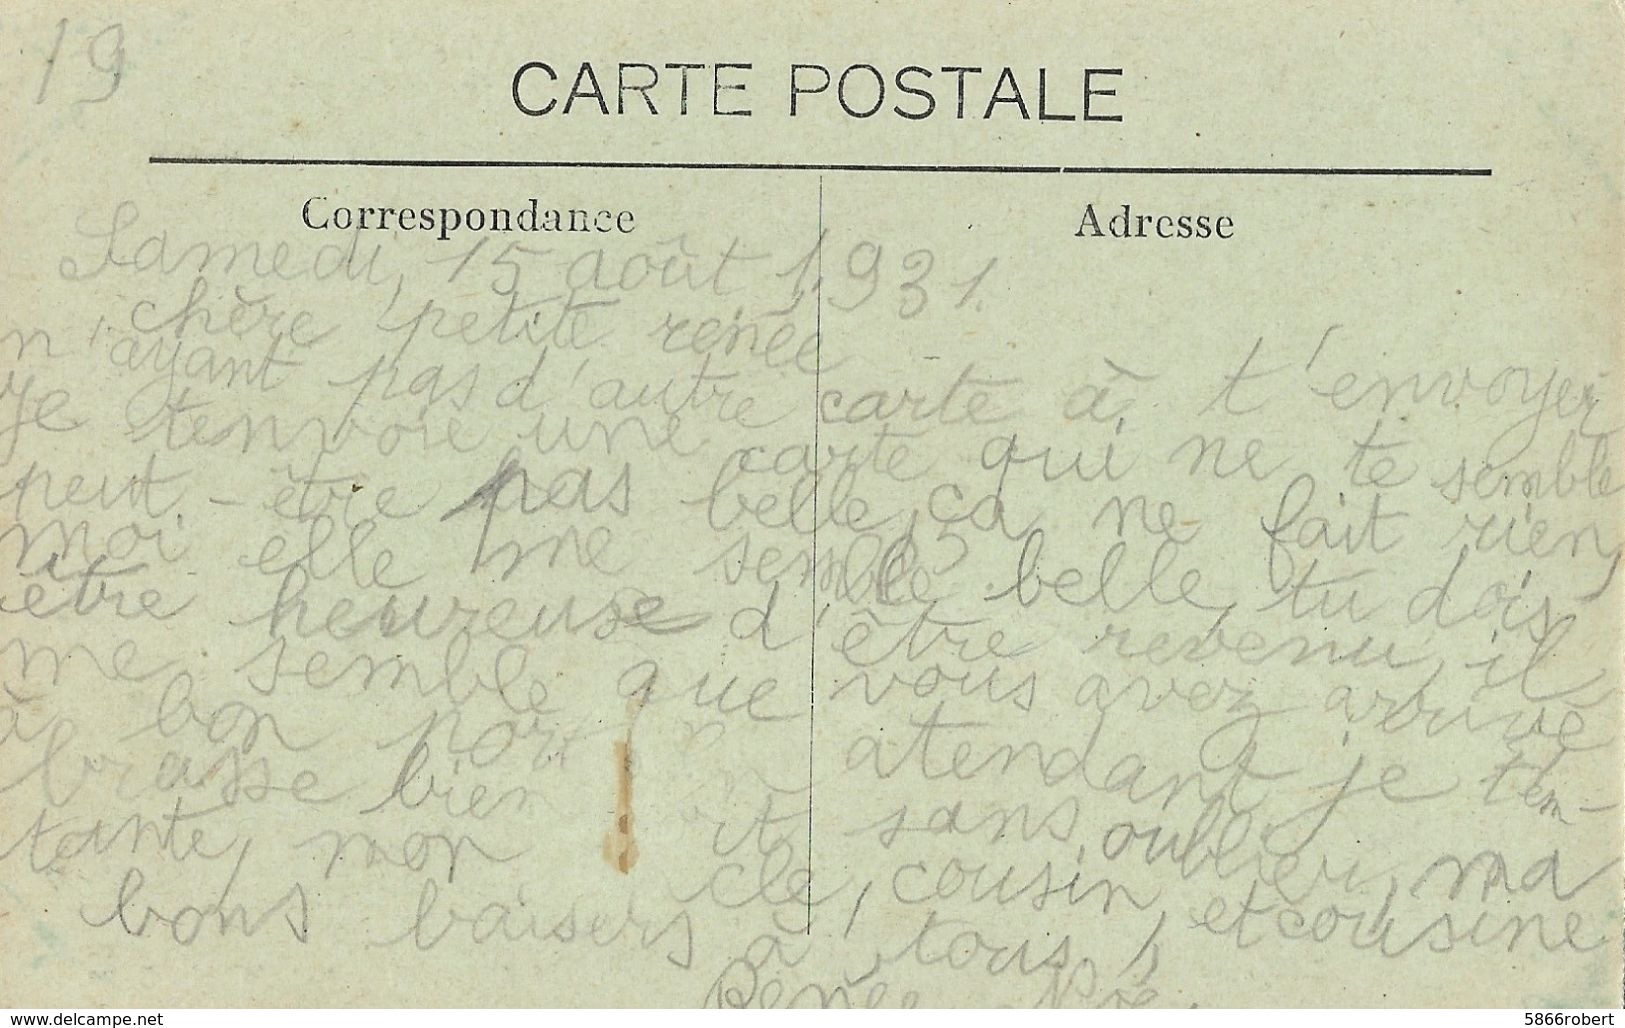 19
CARTE POSTALE
Correspondance
Adresse
Samedi, 15 août 1931.
chère petite renée
n'ayant pas d'autre carte à t'envoyer
je tenvoie une carte qui ne te semble
peut-être pas belle, ça ne fait rien,
moi elle me semble belle, tu dois
être heureuse d'être revenu, il
me semble que vous avez arrivé
à bon port atendant je t'em-
brasse bien sans oublier, ma
tante, mon cle, cousin, et cousine
bons baisers à tous,
Renée
www.delcampe.net
5866robert